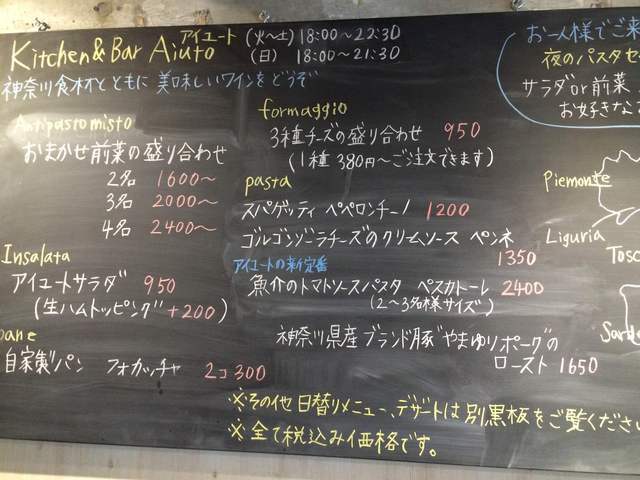 Kitchen & Bar Aiuto アイユート (火〜土) 18:00〜22:30
(日) 18:00〜21:30
神奈川食材とともに 美味しいワインをどうぞ
Antipasto misto
おまかせ前菜の盛り合わせ
2名 1600〜
3名 2000〜
4名 2400〜
Insalata
アイユートサラダ 950
(生ハムトッピング +200)
pane
自家製パン フォカッチャ 2コ 300
formaggio
3種チーズの盛り合わせ 950
(1種 380円〜ご注文できます)
pasta
スパゲッティ ペペロンチーノ 1200
ゴルゴンゾラチーズのクリームソース ペンネ
1350
アイユートの新定番
魚介のトマトソースパスタ ペスカトーレ 2400
(2〜3名様サイズ)
神奈川県産ブランド豚"やまゆりポーク"の
ロースト 1650
※その他 日替りメニュー、デザートは別黒板をご覧ください
※全て税込み価格です。
お一人様でご来
夜のパスタセ
サラダor前菜
お好きな
Piemonte
Liguria
Tosc
Sard